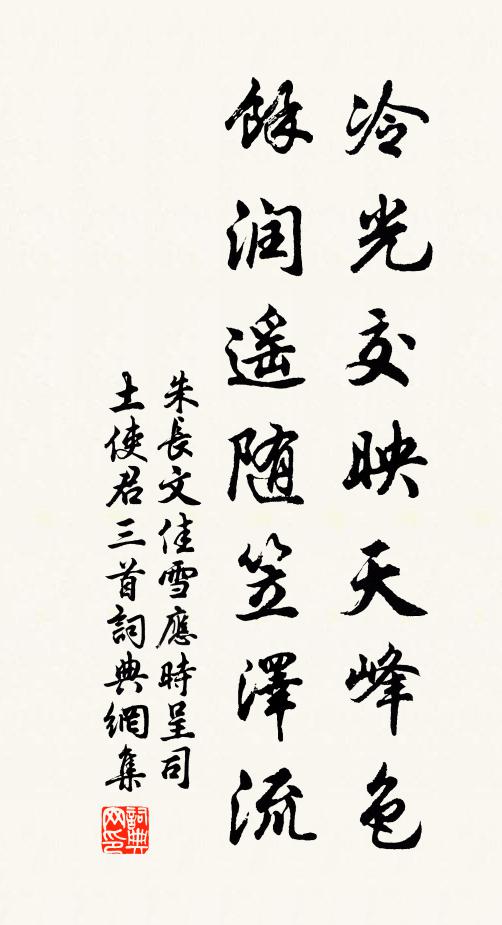 冷光交映天峰色
餘润遥随笠澤流
朱長文佳雪應時呈司
土使君三首詞典網集
詞典
网印